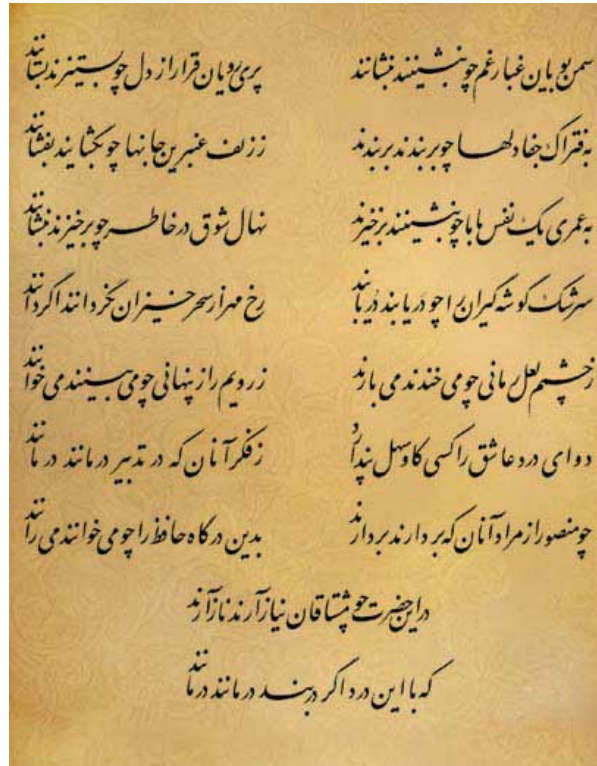 سمن بویان غبار غم چو بنشینند بنشانند پری رویان قرار از دل چو بستیزند بستانند
به فتراک جفا دلها چو بربندند بربندند ز زلف عنبرین جانها چو بگشایند بفشانند
به عمری یک نفس با ما چو بنشینند برخیزند نهال شوق در خاطر چو برخیزند بنشانند
سرشک گوشه گیران را چو دریابند در یابند رخ مهر از سحر خیزان نگردانند اگر دانند
ز چشمم لعل رمانی چو می خندند می بارند ز رویم راز پنهانی چو می بینند می خوانند
دوای درد عاشق را کسی کاو سهل پندارد ز فکر آنان که در تدبیر درمانند در مانند
چو منصور از مراد آنان که بردارند بر دارند بدین درگاه حافظ را چو می خوانند می رانند
در این حضرت چو مشتاقان نیاز آرند ناز آرند
که با این درد اگر دربند درمانند درمانند